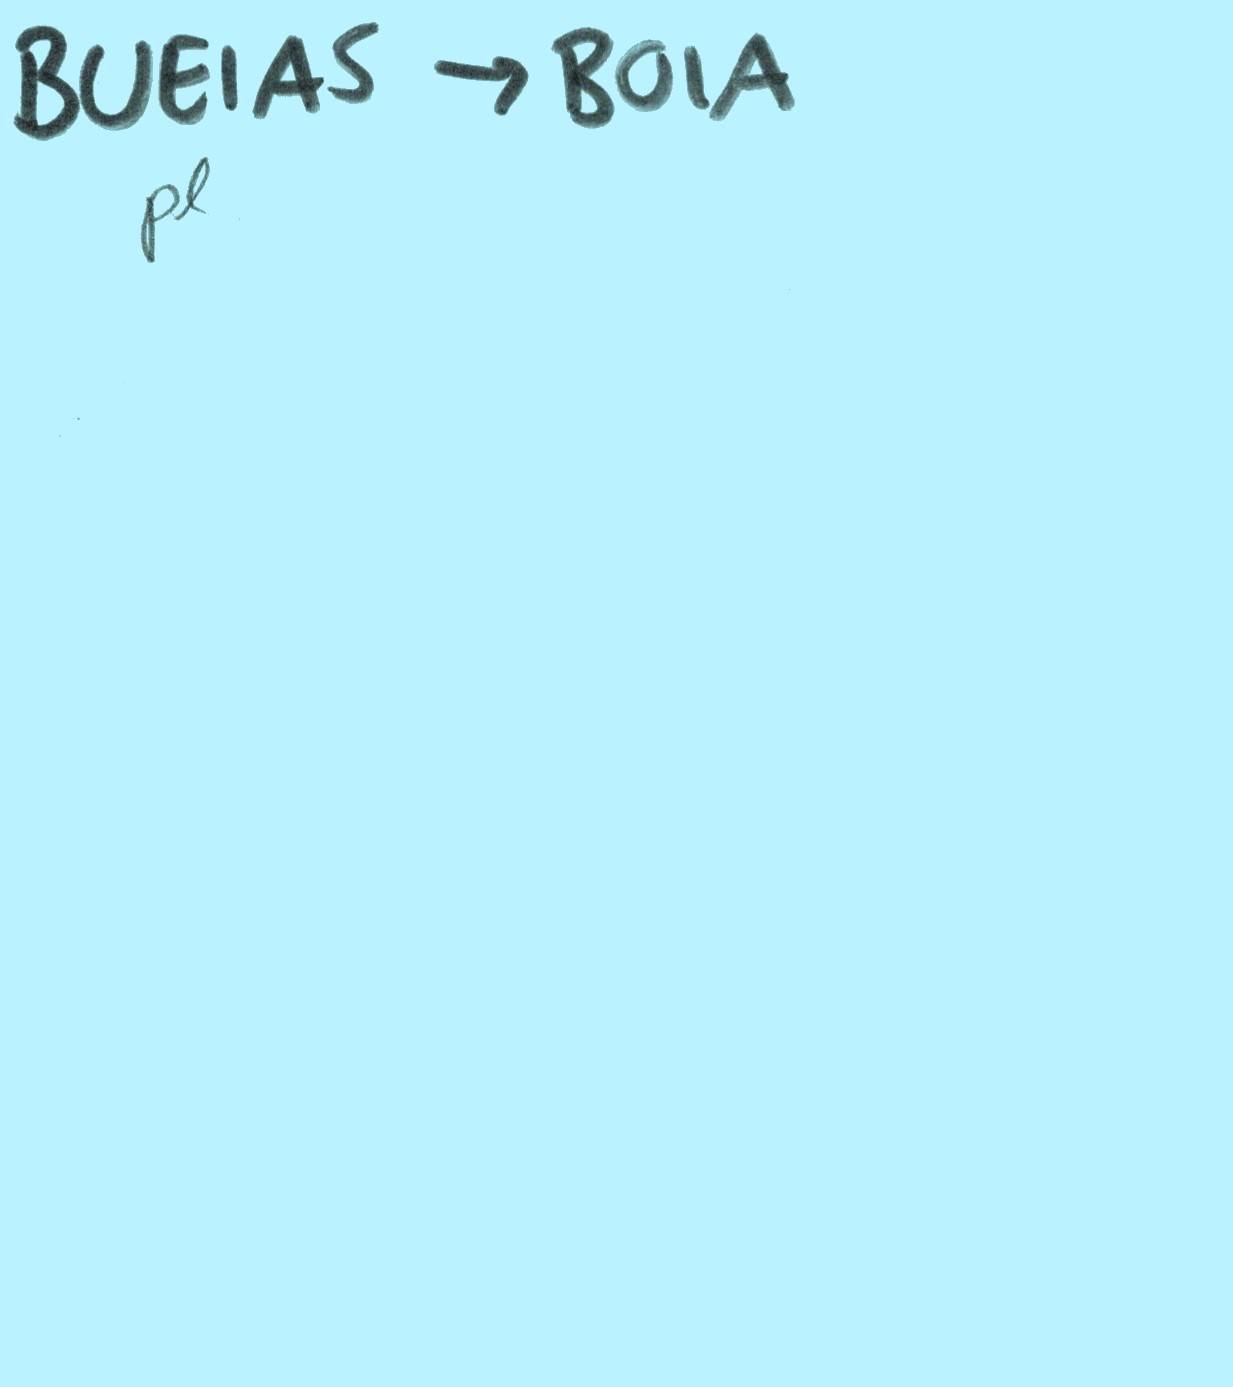 BUEIAS → BOIA
pl